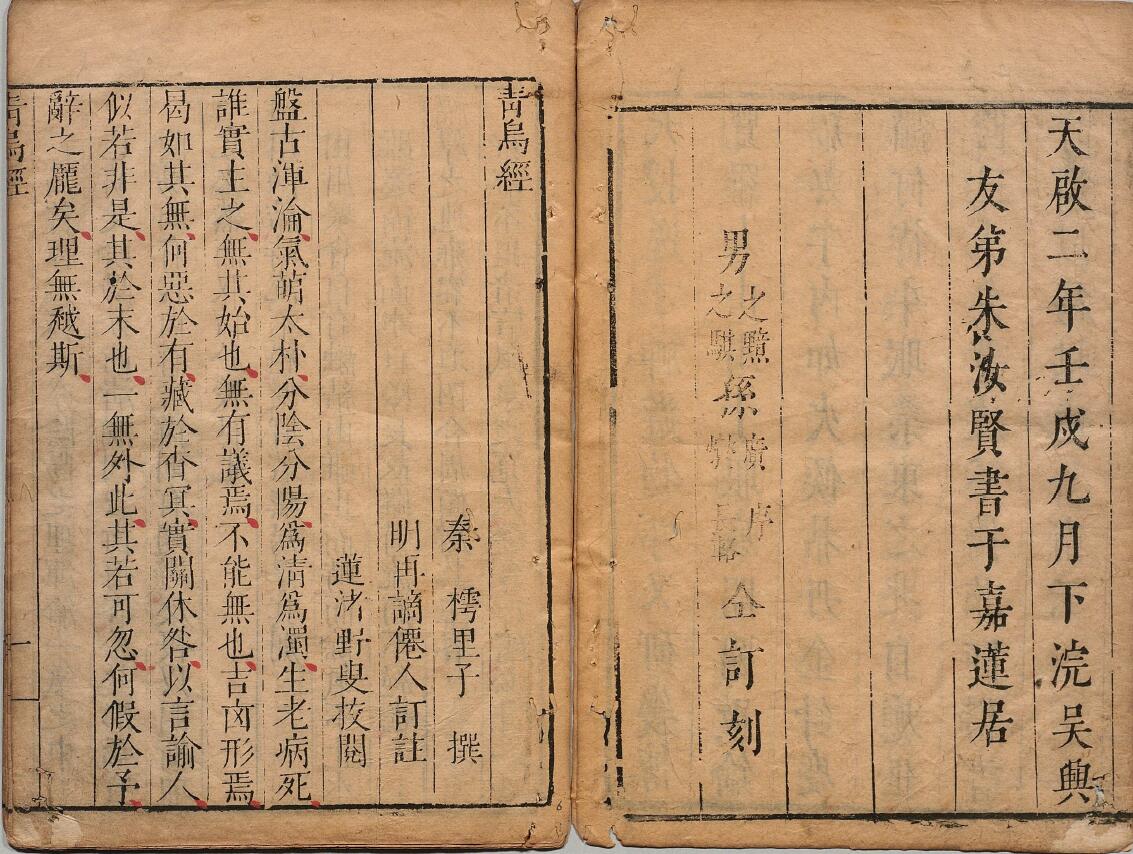 天啟二年壬戌九月下浣吴興
友弟朱汝賢書于嘉蓮居
男之驥之騏孫廣序仝訂刻
青烏經
秦樗里子撰
明再謫僊人訂註
蓮渚野叟挍閱
盤古渾淪氣萌太朴分陰分陽為清為濁生老病死
誰實主之無其始也無有議焉不能無也吉㐫形焉
曷如其無何惡於有藏於杳冥實關休咎以言諭人
似若非是其於末也一無外此其若可忽何假於予
辭之厖矣理無越斯
青烏經
一